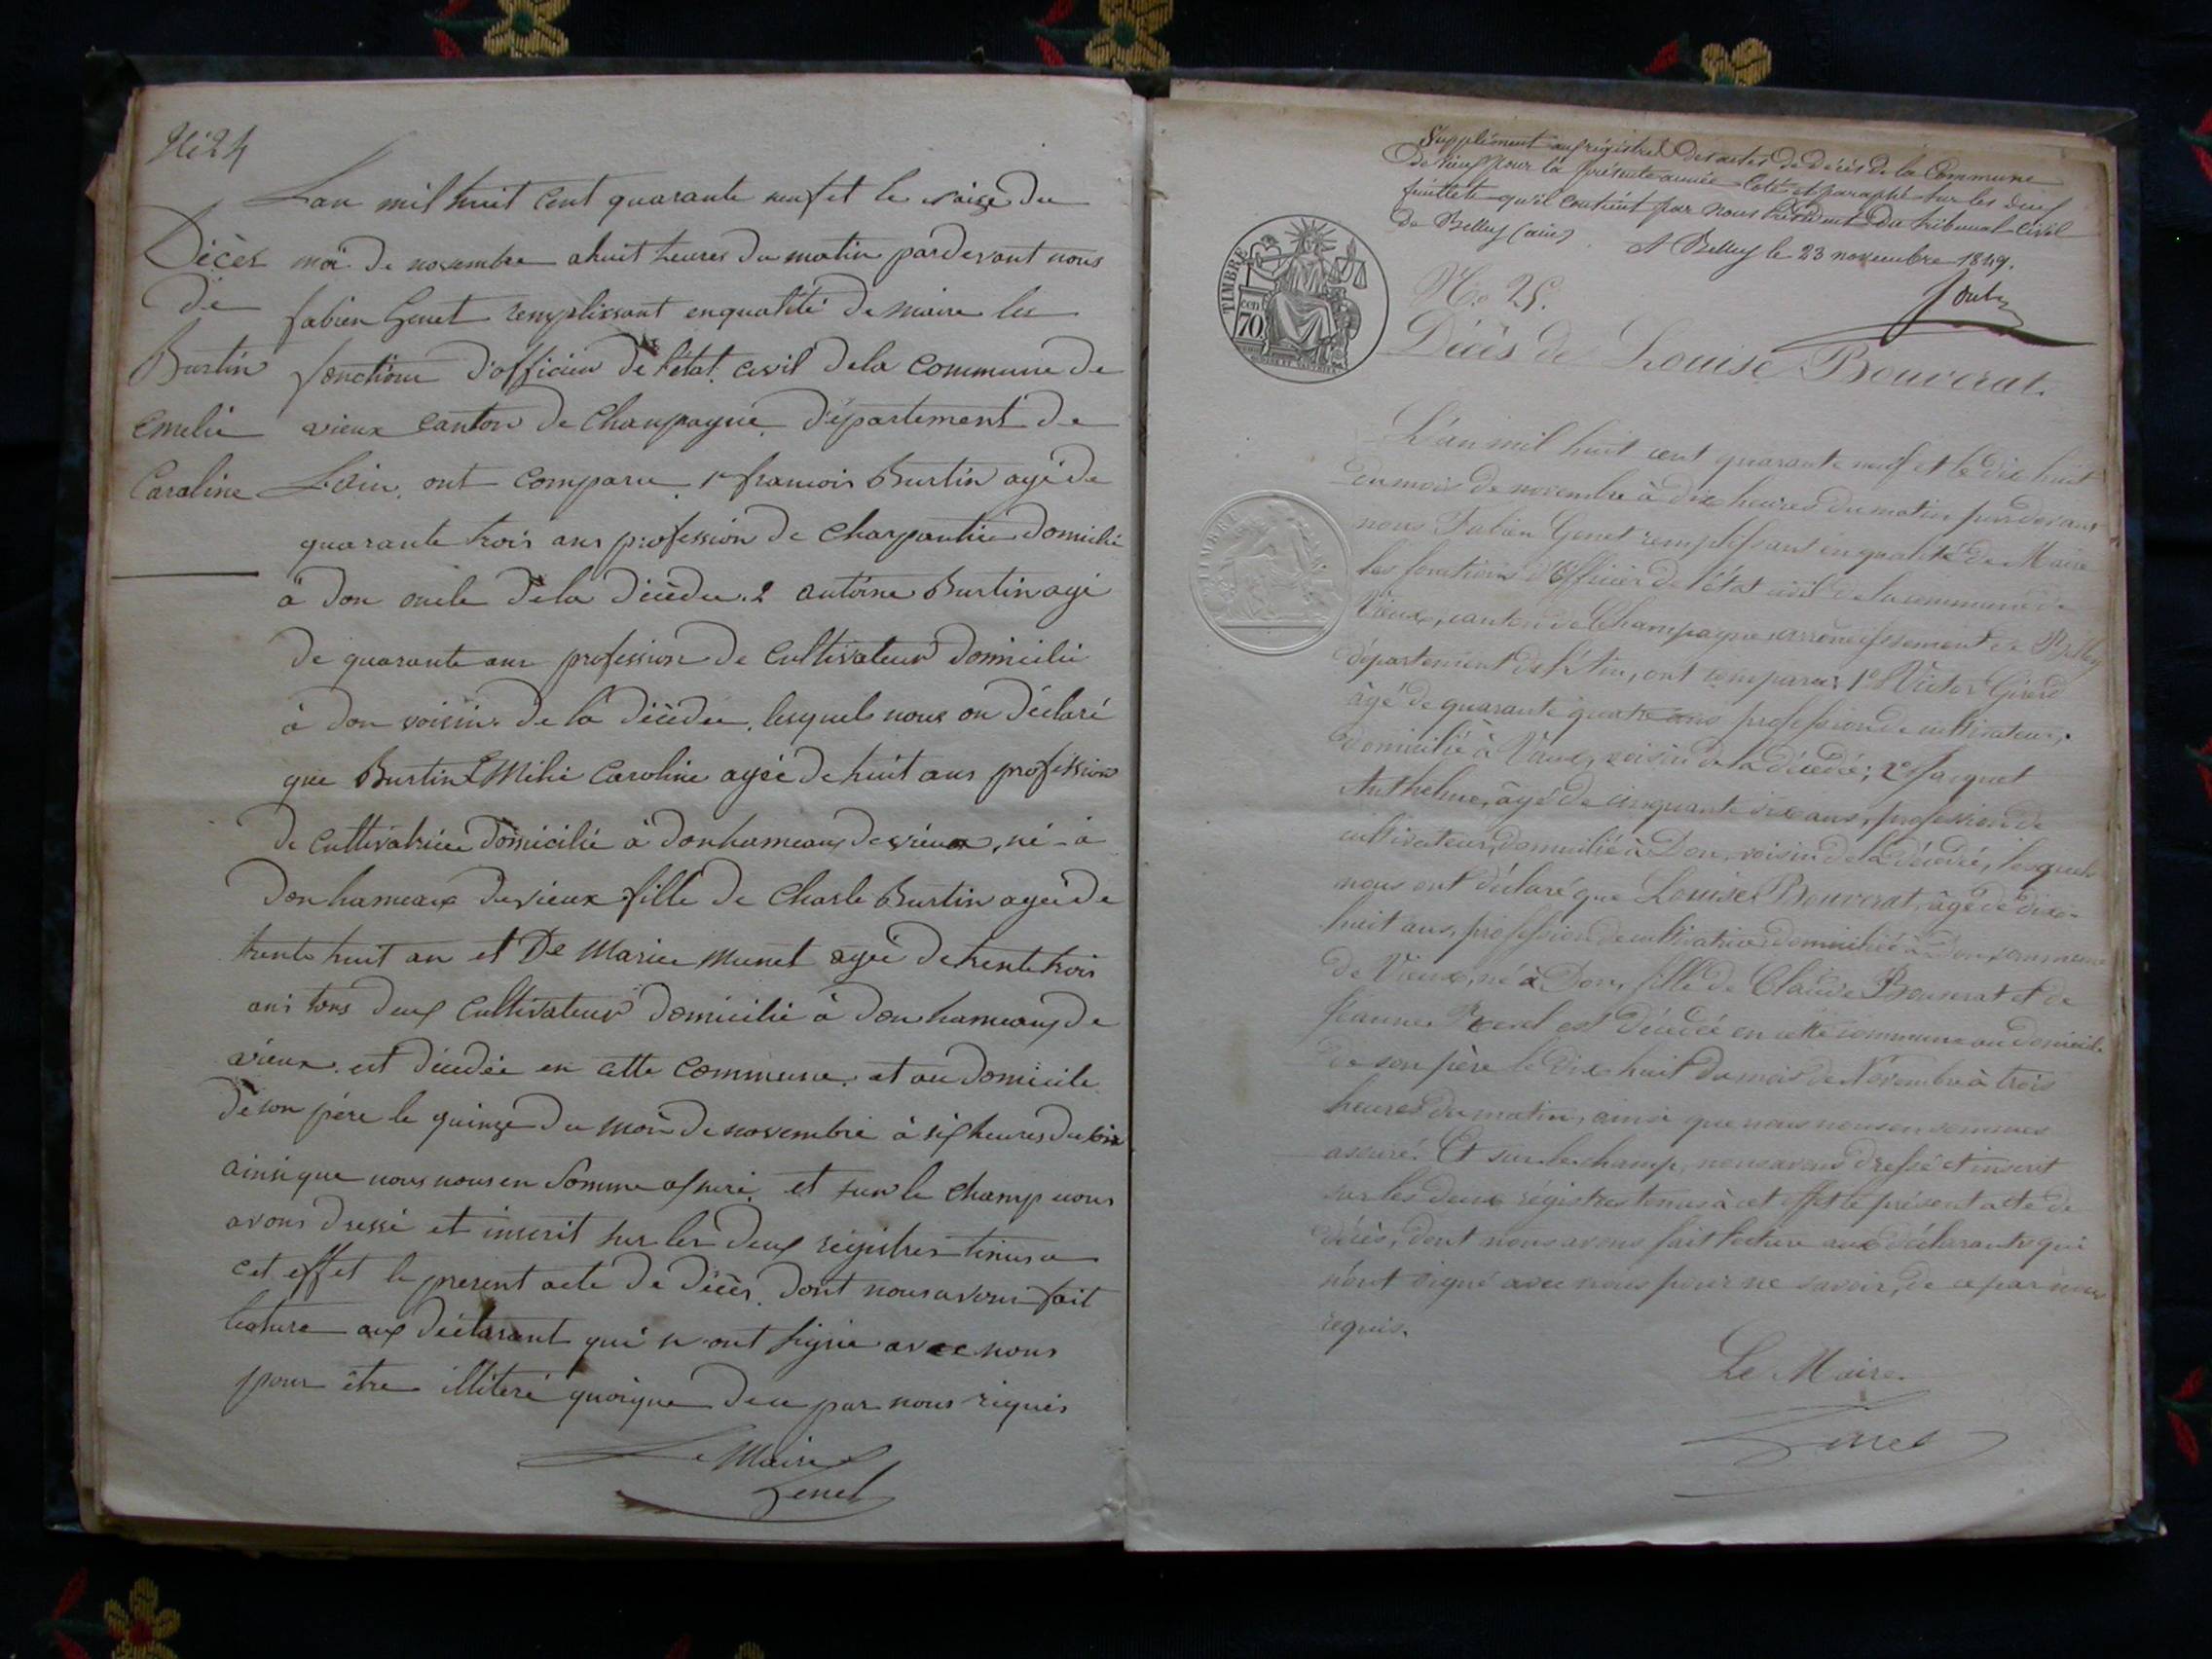 No 24
Décès
de
Burtin
Emelie
Caroline
L'an mil huit cent quarante neuf et le saize du
moi de novembre a huit heures du matin pardevant nous
fabien Genet remplissant en qualité de maire les
fonctions d'officier de l'état civil dela commune de
vieux canton de Champagne département de
L'ain, ont comparu 1er francois Burtin agé de
quarante trois ans profession de Charpantié domicilié
à don oncle dela décédée. 2 antoine Burtin agé
de quarante ans profession de Cultivateur domicilié
à don voisin de la décédée, lesquels nous on déclaré
que Burtin Emilie Caroline agée de huit ans profession
de cultivatrice domicilié à don hameaux de vieux, né à
Don hameaux de vieux fille de Charle Burtin agé de
trente huit an et De Marie Munet agé de trente trois
ans tous deux Cultivateur domicilié à don hameaux de
vieux est décédée en cette Commune et au domicile
de son père le quinze du moi de novembre à six heures du soir
ainsi que nous nous en somme assuré, et sur le champ nous
avons dressé et inscrit sur les deux régistres tenus a
cet effet le present acte de décès, dont nous avons fait
lecture aux déclarant qui n'ont signé avec nous
pour être illiteré quoique de ce par nous requis
Le Maire
Genet
Supplément au régistre des actes de décès de la Commune
de vieux pour la présente année Coté et paraphé sur les deux
feuillets qu'il contient par nous Président du tribunal Civil
de Belley (ain)
A Belley le 23 novembre 1849.
TIMBRE
70
No 25.
Décès de Louise Bouverat.
L'an mil huit cent quarante neuf et le dix huit
du mois de novembre à dix heures du matin pardevant
nous Fabien Genet remplissant en qualité de Maire
les fonctions d'Officier de l'état civil de la commune de
Vieux, canton de Champagne arrondissement de Belley
département de l'Ain, ont comparu: 1° Victor Girerd
âgé de quarante quatre ans profession de cultivateur,
domicilié à Vieux, voisin de la décédée; 2° Jacquet
Anthelme, âgé de cinquante six ans, profession de
cultivateur, domicilié à Don, voisin de la décédée, lesquels
nous ont déclaré que Louise Bouverat, âgé de dix-
huit ans, profession de cultivatrice domiciliée à Don, commune
de Vieux, né à Don, fille de Claude Bouverat et de
Jeanne est décédée en cette commune au domicile
de son père le dix huit du mois de Novembre à trois
heures du matin, ainsi que nous nous en sommes
assuré. Et sur le champ, nous avons dressé et inscrit
sur les deux régistres tenus à cet effet le présent acte de
décès, dont nous avons fait lecture aux déclarants qui
n'ont signé avec nous pour ne savoir, de ce par nous
requis.
Le Maire.
Genet